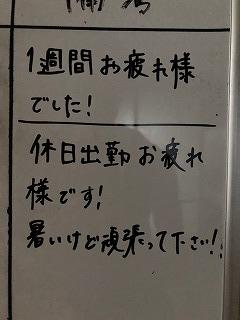 1週間お疲れ様
でした!
休日出勤お疲れ
様です!
暑いけど頑張って下さい!!